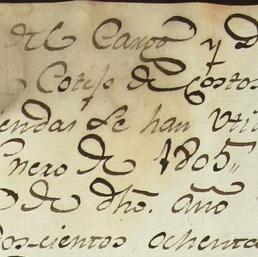 del Cargo y D
Cotejo de Costos
endas se han Uti
Enero de 1805,,
D de dho. año
dos-cientos ochenta